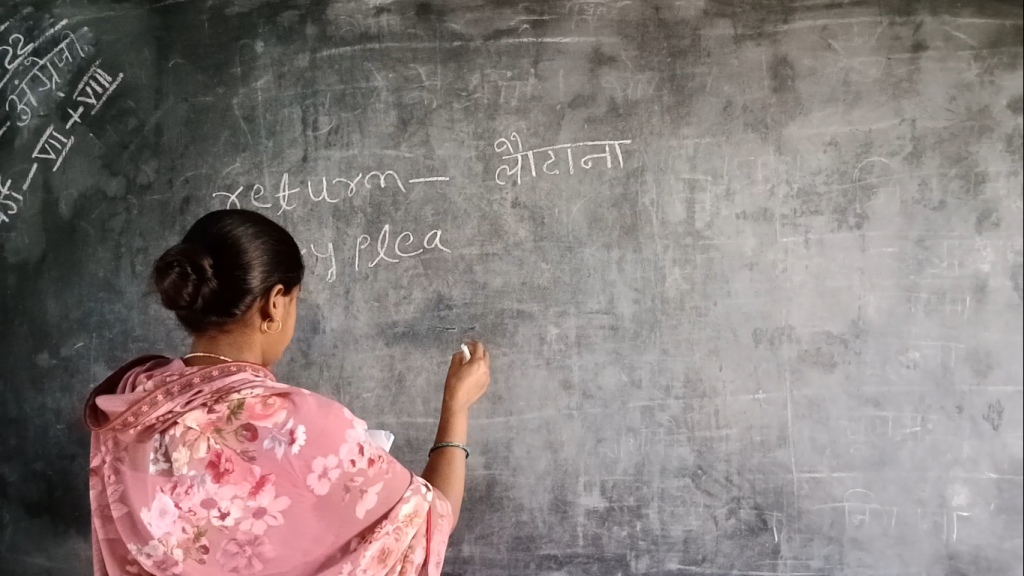 22
अंग्रेजी
VII + VIII
return — लौटाना
y plea